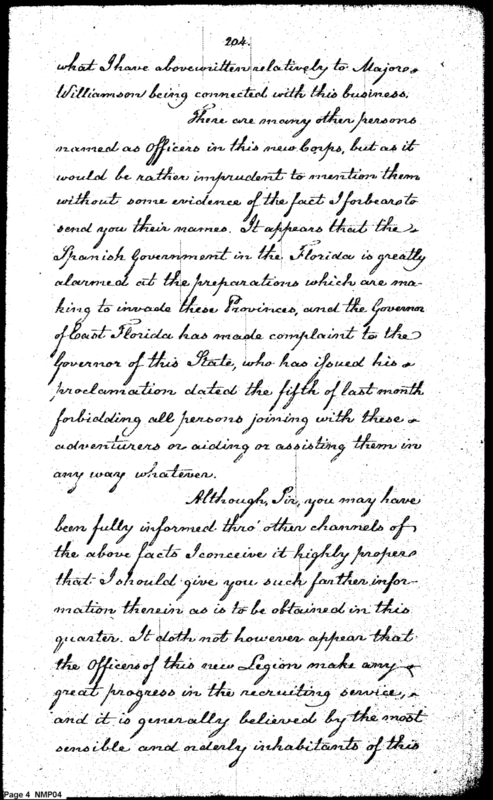 204.
what I have above written relatively to Major
Williamson being connected with this business.
There are many other persons
named as Officers in this new Corps, but as it
would be rather imprudent to mention them
without some evidence of the fact I forbear to
send you their names. It appears that the
Spanish Government in the Florida is greatly
alarmed at the preparations which are ma-
king to invade these Provinces, and the Governor
of East Florida has made complaint to the
Governor of this State, who has issued his
proclamation dated the fifth of last month
forbidding all persons joining with these
adventurers or aiding or assisting them in
any way whatever.
Although, Sir, you may have
been fully informed thro' other channels of
the above facts I conceive it highly proper
that I should give you such farther infor-
mation therein as is to be obtained in this
quarter. It doth not however appear that
the Officers of this new Legion make any
great progress in the recruiting service,
and it is generally believed by the most
sensible and orderly inhabitants of this
Page 4 NMP04